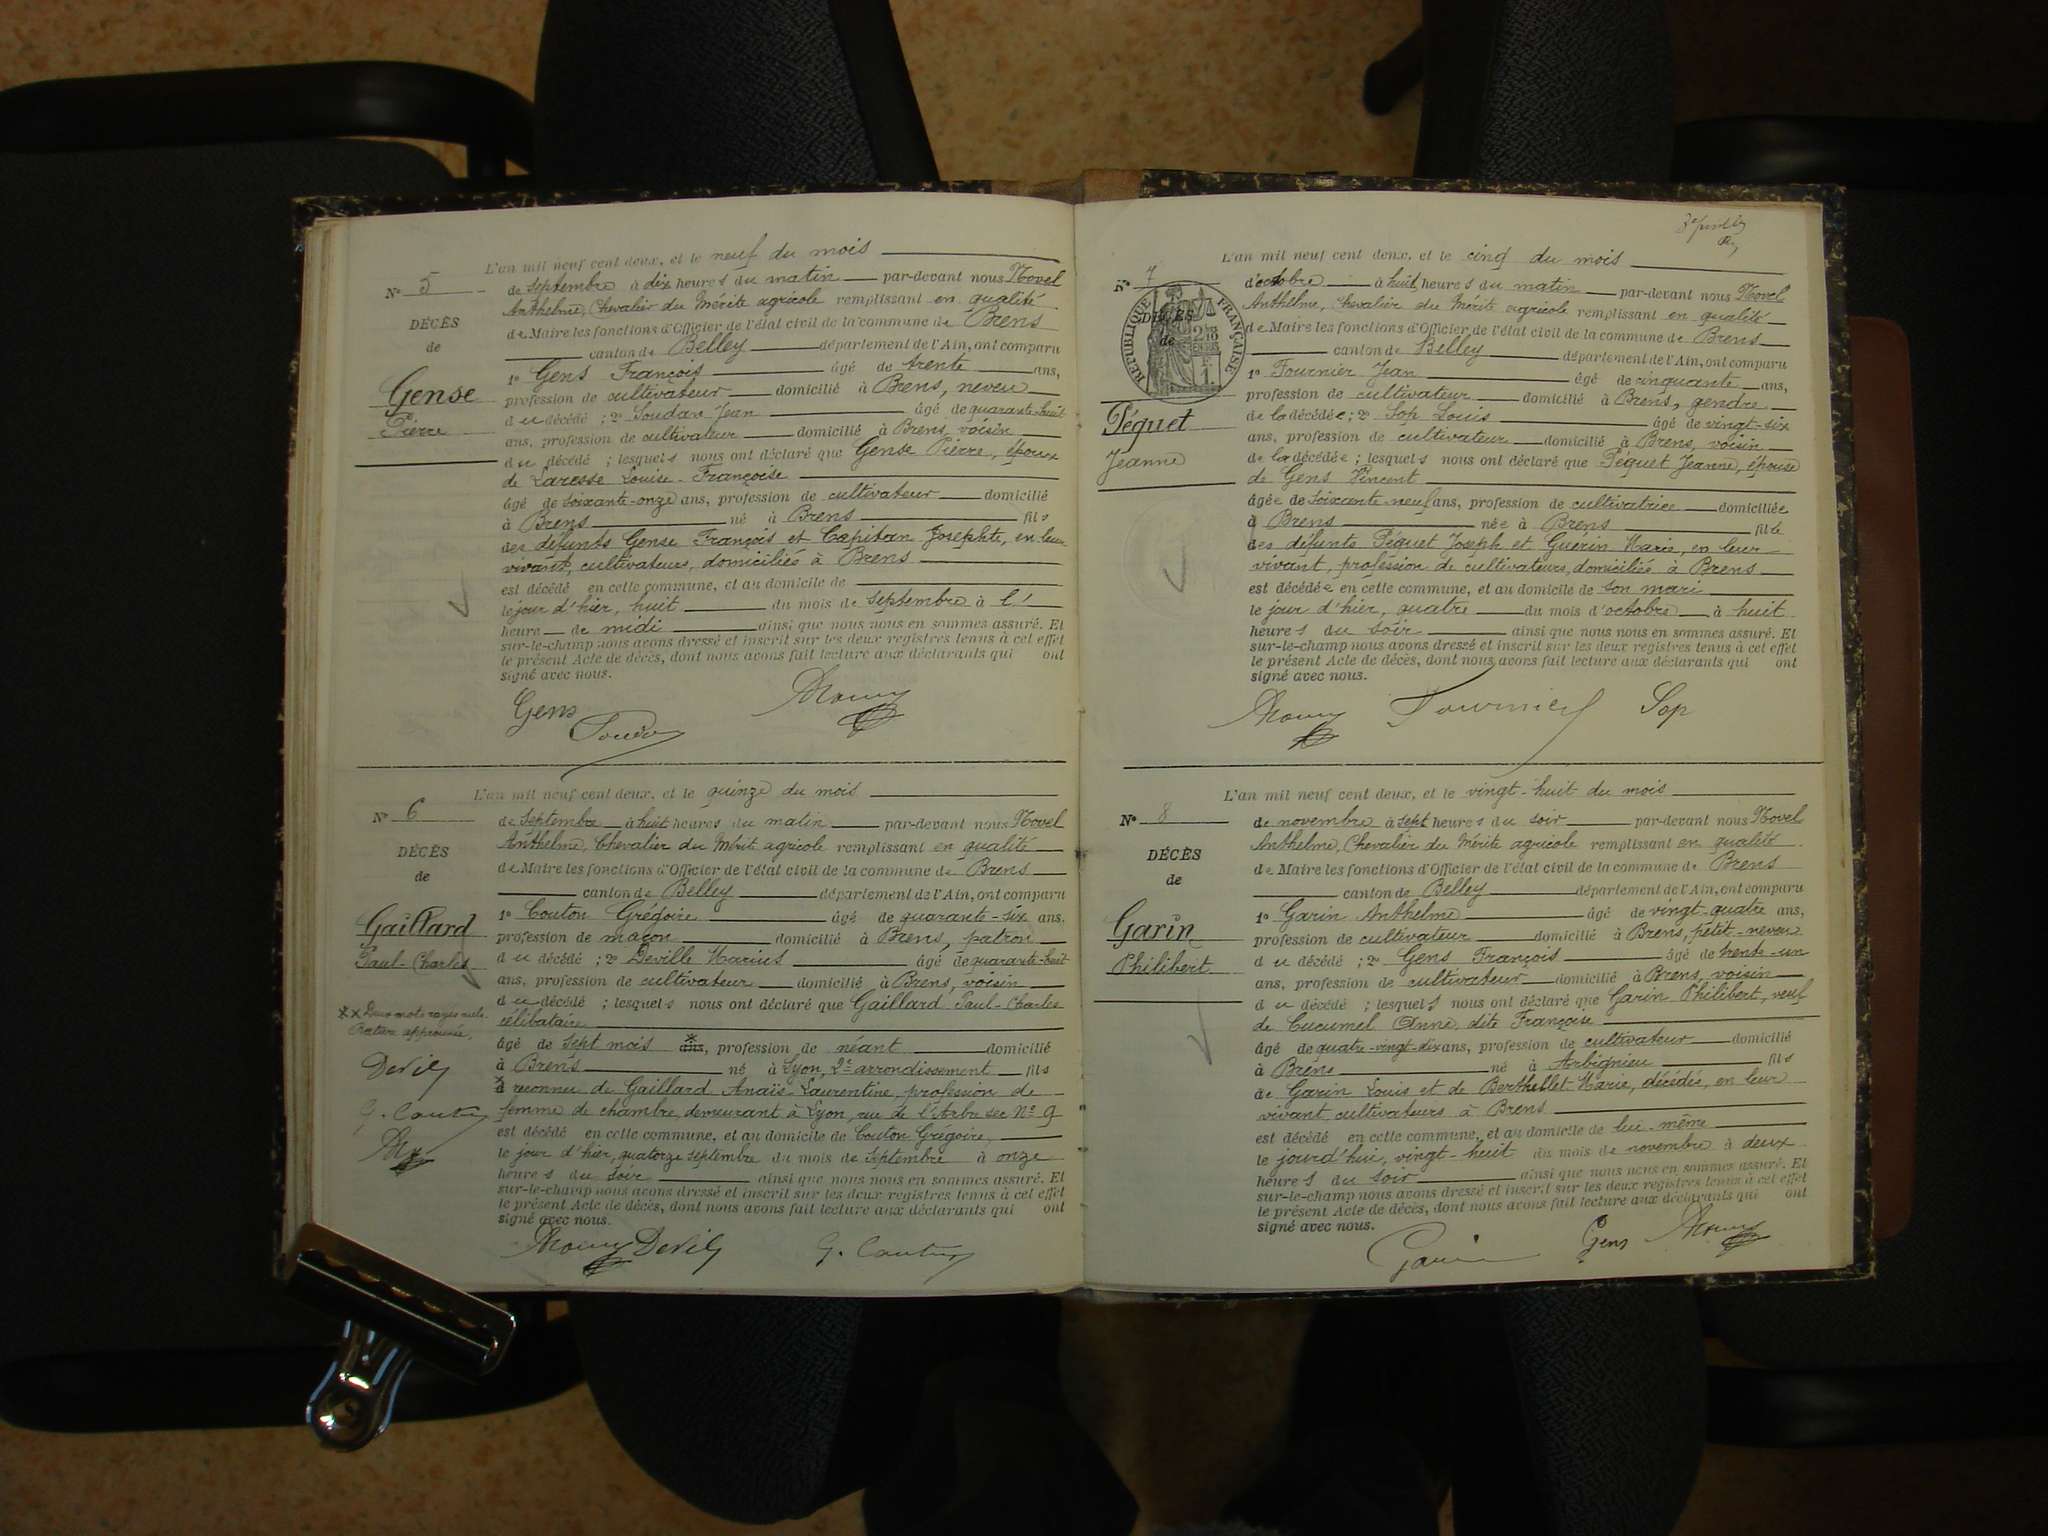 L'an mil neuf cent deux, et le neuf du mois
N° 5
de septembre à dix heures du matin par-devant nous Novel
Anthelme, Chevalier du Mérite agricole remplissant en qualité
DÉCÈS
de Maire les fonctions d'Officier de l'état civil de la commune de Brens
de
canton de Belley département de l'Ain, ont comparu
1° Gens François âgé de trente ans,
Gense
profession de cultivateur domicilié à Brens, neveu
Pierre
du décédé ; 2° Soudan Jean âgé de quarante-huit
ans, profession de cultivateur domicilié à Brens, voisin
du décédé ; lesquels nous ont déclaré que Gense Pierre, époux
de Laresse Louise-Françoise
âgé de soixante-onze ans, profession de cultivateur domicilié
à Brens né à Brens fils
des défunts Gense François et Capitan Josephte, en leur
vivant, cultivateurs, domiciliés à Brens
est décédé en cette commune, et au domicile de
le jour d'hier, huit du mois de septembre à l'
heure de midi ainsi que nous nous en sommes assuré. Et
sur-le-champ nous avons dressé et inscrit sur les deux registres tenus à cet effet
le présent Acte de décès, dont nous avons fait lecture aux déclarants qui ont
signé avec nous.
Gens
L'an mil neuf cent deux, et le quinze du mois
N° 6
de septembre à huit heures du matin par-devant nous Novel
Anthelme, Chevalier du Mérit agricole remplissant en qualité
DÉCÈS
de Maire les fonctions d'Officier de l'état civil de la commune de Brens
de
canton de Belley département de l'Ain, ont comparu
1° Couton Grégoire âgé de quarante-six ans,
Gaillard
profession de maçon domicilié à Brens, patron
Paul-Charles
du décédé ; 2° Deville Marius âgé de quarante-huit
ans, profession de cultivateur domicilié à Brens, voisin
du décédé ; lesquels nous ont déclaré que Gaillard Paul-Charles
célibataire
xx Deux mots rayés nuls.
Rature approuvée,
âgé de sept mois ans, profession de néant domicilié
à Brens né à Lyon, 2e arrondissement fils
reconnu de Gaillard Anaïs-Laurentine, profession de
femme de chambre, demeurant à Lyon, rue de l'Arbre sec N° 9
est décédé en cette commune, et au domicile de Couton Grégoire,
le jour d'hier, quatorze septembre du mois de septembre à onze
heures du soir ainsi que nous nous en sommes assuré. Et
sur-le-champ nous avons dressé et inscrit sur les deux registres tenus à cet effet
le présent Acte de décès, dont nous avons fait lecture aux déclarants qui ont
signé avec nous.
L'an mil neuf cent deux, et le cinq du mois
N° 7
d'octobre à huit heures du matin par-devant nous Novel
Anthelme, Chevalier du Mérite agricole remplissant en qualité
RÉPUBLIQUE FRANÇAISE
DÉCÈS
de Maire les fonctions d'Officier de l'état civil de la commune de Brens
de
canton de Belley département de l'Ain, ont comparu
1° Fournier Jean âgé de cinquante ans,
profession de cultivateur domicilié à Brens, gendre
Péquet
de la décédée ; 2° Sop Louis âgé de vingt-six
ans, profession de cultivateur domicilié à Brens, voisin
Jeanne
de la décédée ; lesquels nous ont déclaré que Péquet Jeanne, épouse
de Gens Vincent
âgée de soixante-neuf ans, profession de cultivatrice domiciliée
à Brens née à Brens fille
des défunts Péquet Joseph et Guérin Marie, en leur
vivant, profession de cultivateurs, domiciliés à Brens
est décédée en cette commune, et au domicile de son mari
le jour d'hier, quatre du mois d'octobre à huit
heures du soir ainsi que nous nous en sommes assuré. Et
sur-le-champ nous avons dressé et inscrit sur les deux registres tenus à cet effet
le présent Acte de décès, dont nous avons fait lecture aux déclarants qui ont
signé avec nous.
Fournier Sop
L'an mil neuf cent deux, et le vingt-huit du mois
N° 8
de novembre à sept heures du soir par-devant nous Novel
Anthelme, Chevalier du Mérite agricole remplissant en qualité
DÉCÈS
de Maire les fonctions d'Officier de l'état civil de la commune de Brens
de
canton de Belley département de l'Ain, ont comparu
1° Garin Anthelme âgé de vingt-quatre ans,
Garin
profession de cultivateur domicilié à Brens, petit-neveu
Philibert
du décédé ; 2° Gens François âgé de trente-un
ans, profession de cultivateur domicilié à Brens, voisin
du décédé ; lesquels nous ont déclaré que Garin Philibert, veuf
de Cucumel Anne dite Françoise
âgé de quatre-vingt-dix ans, profession de cultivateur domicilié
à Brens né à Arbignieu fils
de Garin Louis et de Berthellet Marie, décédés, en leur
vivant cultivateurs à Brens
est décédé en cette commune, et au domicile de lui-même
le jourd'hui, vingt-huit du mois de novembre à deux
heures du soir ainsi que nous nous en sommes assuré. Et
sur-le-champ nous avons dressé et inscrit sur les deux registres tenus à cet effet
le présent Acte de décès, dont nous avons fait lecture aux déclarants qui ont
signé avec nous.
Garin Gens